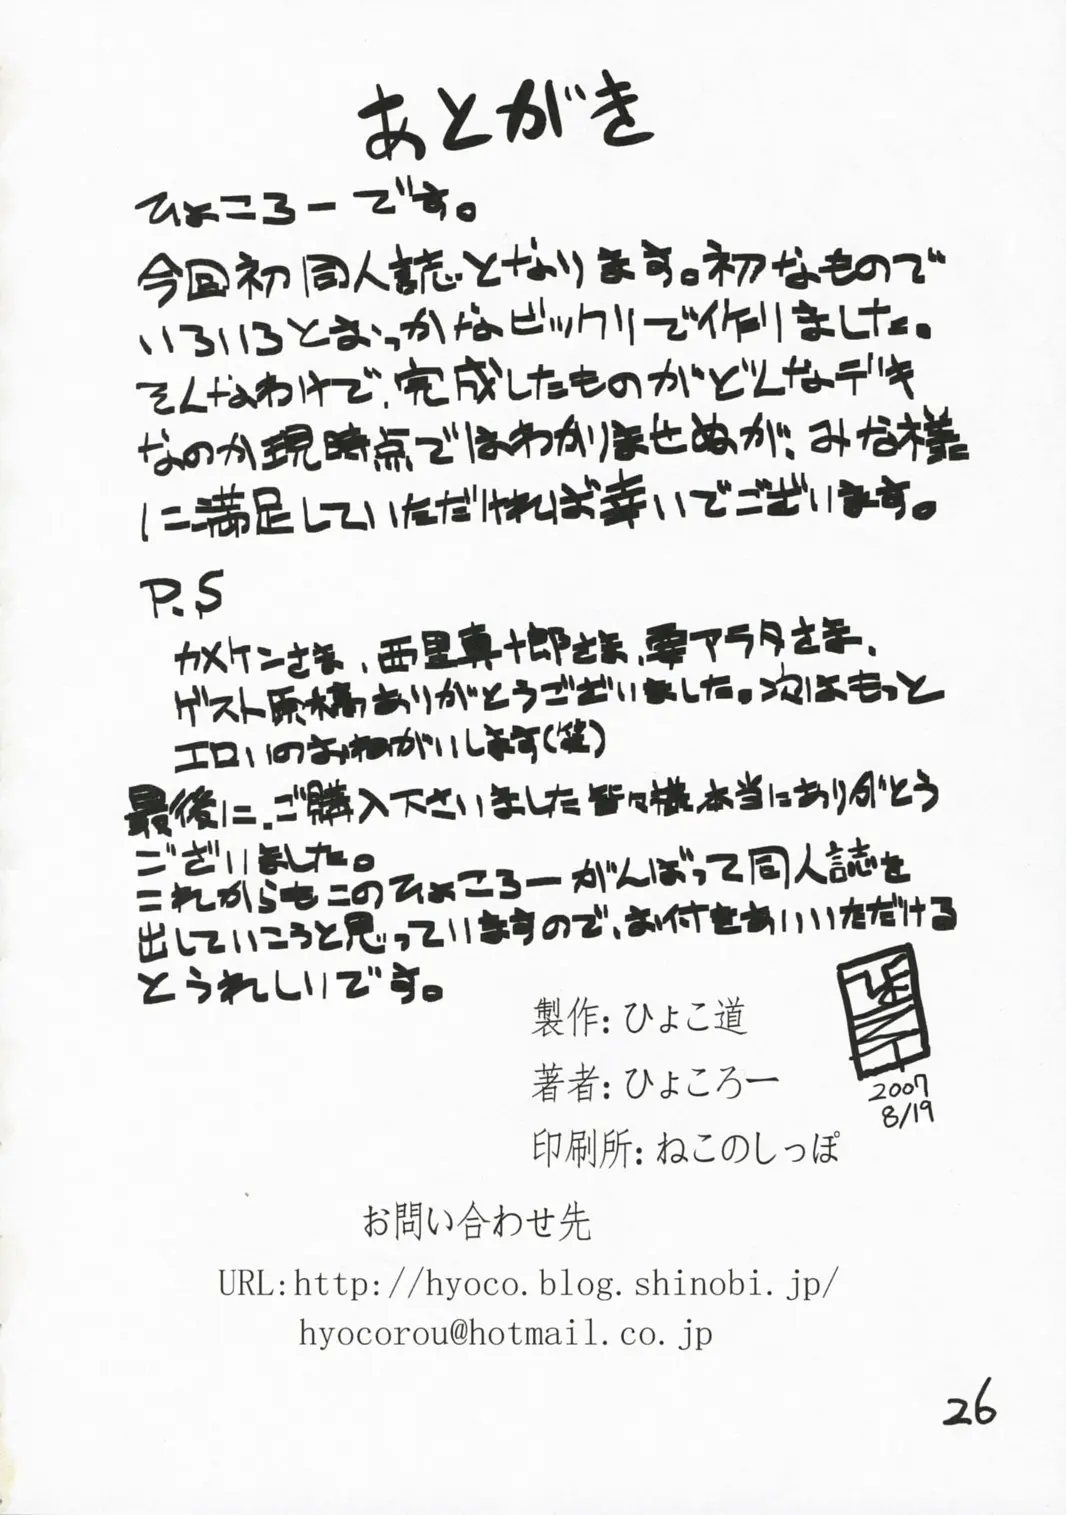 あとがき
ひょころーです。
今回初同人誌となります。初なもので
いろいろとおっかなビックリで作りました。
そんなわけで、完成したものがどんなデキ
なのか現時点ではわかりませぬが、みな様に
に満足していただければ幸いでございます。
P.S
カメケンさま、西里真十郎さま、雫アラタさま、
ゲスト原稿ありがとうございました。次はもっと
エロいのおねがいします(笑)
最後に、ご購入下さいました皆々様、本当にありがとう
ございました。
これからもこのひょころーがんばって同人誌を
出していこうと思っていますので、お付きあいいただける
とうれしいです。
製作：ひょこ道
著者：ひょころー
印刷所：ねこのしっぽ
2007
8/19
お問い合わせ先
URL:http://hyoco.blog.shinobi.jp/
hyocorou@hotmail.co.jp
26